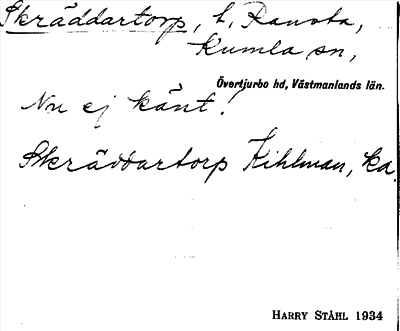 Skräddartorp, t. Ransta,
Kumla sn,
Övertjurbo hd, Västmanlands län.
Nu ej känt!
Skräddartorp Kihlman, ka.
HARRY STÅHL 1934